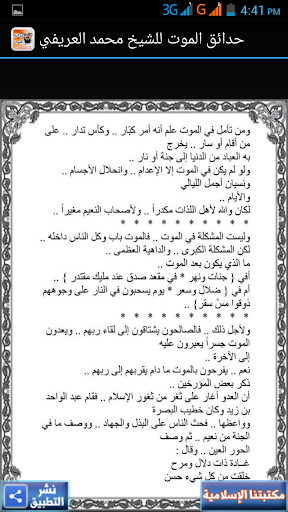 3G G 4:41 PM
حدائق الموت للشيخ محمد العريفي
ومن تأمل في الموت علم أنه أمر كبّار .. وكأس تدار .. على
من أقام أو سار .. يخرج
به العباد من الدنيا إلى جنة أو نار ..
ولو لم يكن في الموت إلا الإعدام .. وانحلال الأجسام ..
ونسيان أجمل الليالي
والأيام ..
لكان والله لأهل اللذات مكدراً .. ولأصحاب النعيم مغيراً ..
* * * * * * * * * *
وليست المشكلة في الموت .. فالموت باب وكل الناس داخله ..
لكن المشكلة الكبرى .. والداهية العظمى ..
ما الذي يكون بعد الموت ..
أفي { جنات ونهر * في مقعد صدق عند مليك مقتدر } ..
أم في { ضلال وسعر * يوم يسحبون في النار على وجوههم
ذوقوا مسّ سقر} ..
* * * * * * * * * *
ولأجل ذلك .. فالصالحون يشتاقون إلى لقاء ربهم .. ويعدون
الموت جسراً يعبرون عليه
إلى الآخرة ..
نعم .. يفرحون بالموت ما دام يقربهم إلى ربهم ..
ذكر بعض المؤرخين ..
أن العدو أغار على ثغر من ثغور الإسلام .. فقام عبد الواحد
بن زيد وكان خطيب البصرة
وواعظها .. فحث الناس على البذل والجهاد .. ووصف ما في
الجنة من نعيم .. ثم وصف
الحور العين .. وقال :
غادة ذات دلال ومرح
خلقت من كل شيء حسن
نشر التطبيق
مكتبتنا الإسلامية